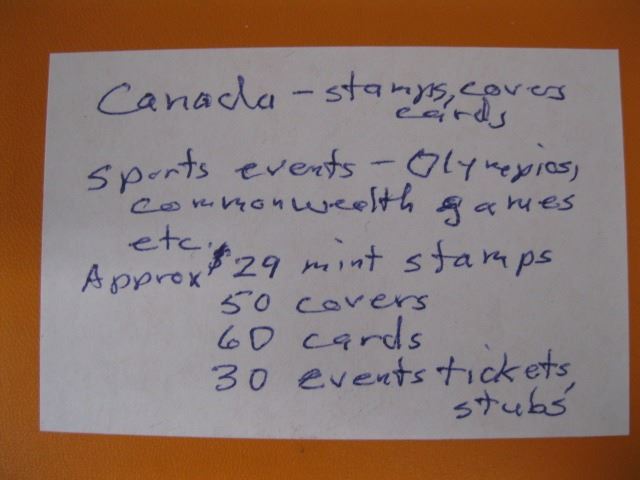 Canada - stamps, covers
cards
Sports events - Olympics,
commonwealth games
etc.
Approx $29 mint stamps
50 covers
60 cards
30 events tickets,
stubs